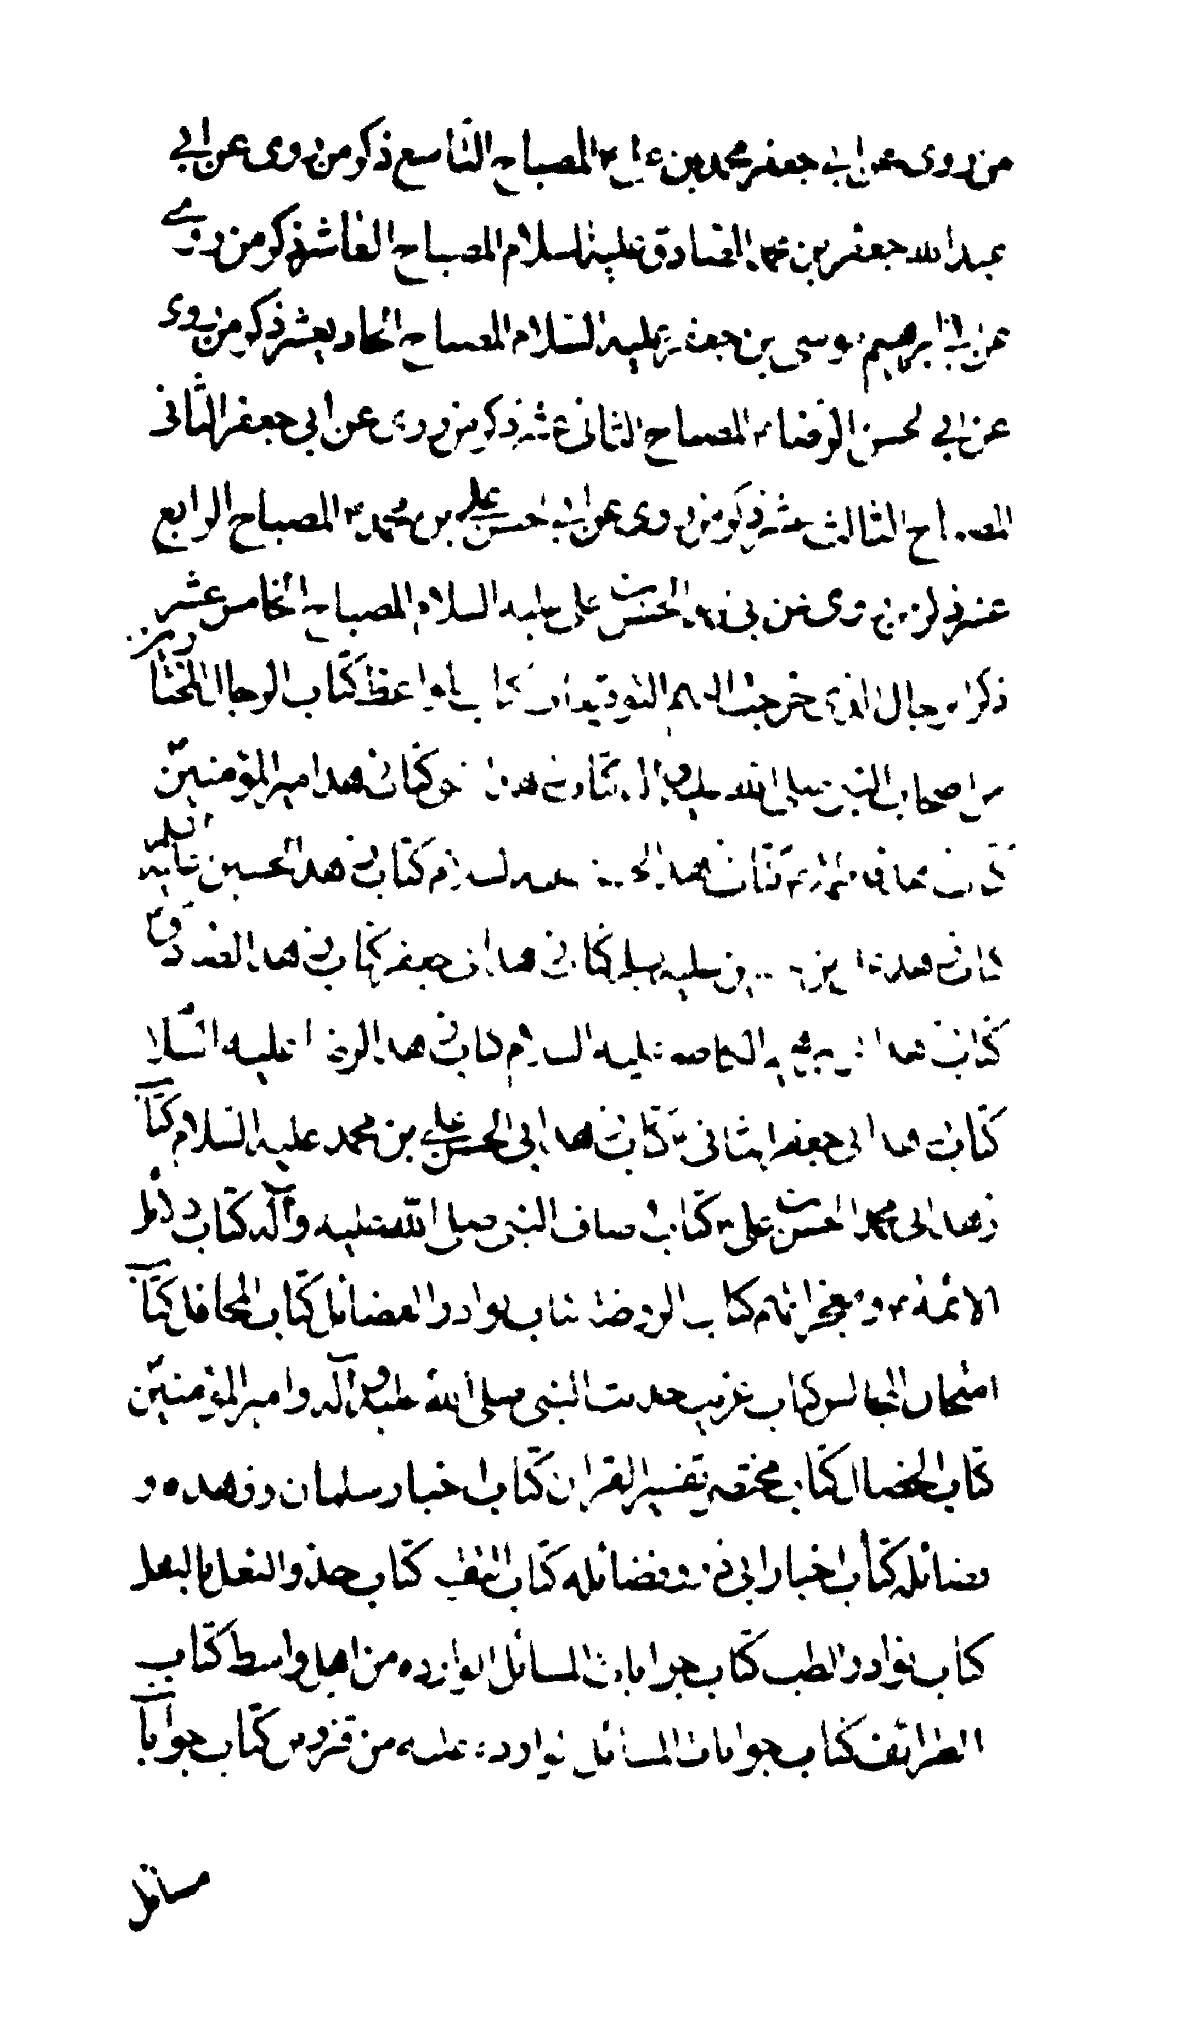 من روى عن ابي جعفر محمد بن علي ع المصباح التاسع ذكر من روى عن ابي
عبد الله جعفر بن محمد الصادق عليه السلام المصباح العاشر ذكر من روى
عن ابي ابرهيم موسى بن جعفر عليه السلام المصباح الحاديعشر ذكر من روى
عن ابي لحسن الرضا ع المصباح الثاني عشر ذكر من روى عن ابي جعفر الثاني
المصباح الثالث عشر ذكر من روى عن ابي الحسن علي بن محمد ع المصباح الرابع
عشر ذكر من روى عن ابي محمد الحسن بن علي عليه السلام المصباح الخامس عشر
ذكر الرجال الذي خرجت اليهم التوقيعات كتاب المواعظ كتاب الرجال المختارين
من اصحاب النبي صلى الله عليه وآله كتاب زهد كتاب زهد امير المؤمنين ع
كتاب زهد فاطمة ع كتاب زهد الحسن عليه السلام كتاب زهد الحسين عليه السلام
كتاب زهد بن عليه السلم كتاب زهد ابي جعفر كتاب زهد الصادق ع
كتاب زهد ابي ابرهيم الكاظم عليه السلام كتاب زهد الرضا عليه السلا
كتاب زهد ابي جعفر الثاني ع كتاب زهد ابي الحسن علي بن محمد عليه السلام كتا
زهد ابي محمد الحسن بن علي ع كتاب اوصاف النبي صلى الله عليه وآله كتاب دلائل
الائمة ع ومعجزاتهم كتاب الروضة كتاب نوادر الفضائل كتاب المحافل كتا
امتحان المجالس كتاب غريب حديث النبي صلى الله عليه وآله وامير المؤمنين ع
كتاب الخصال كتاب مختصر تفسير القران كتاب اخبار سلمان وزهده و
فضائله كتاب اخبار ابي ذر وفضائله كتاب التقية كتاب حذو النعل بالنعل
كتاب نوادر الطب كتاب جوابات المسائل الواردة من اهل واسط كتاب
الطرائف كتاب جوابات المسائل الواردة عليه من قزوين كتاب جوابا
مسائل